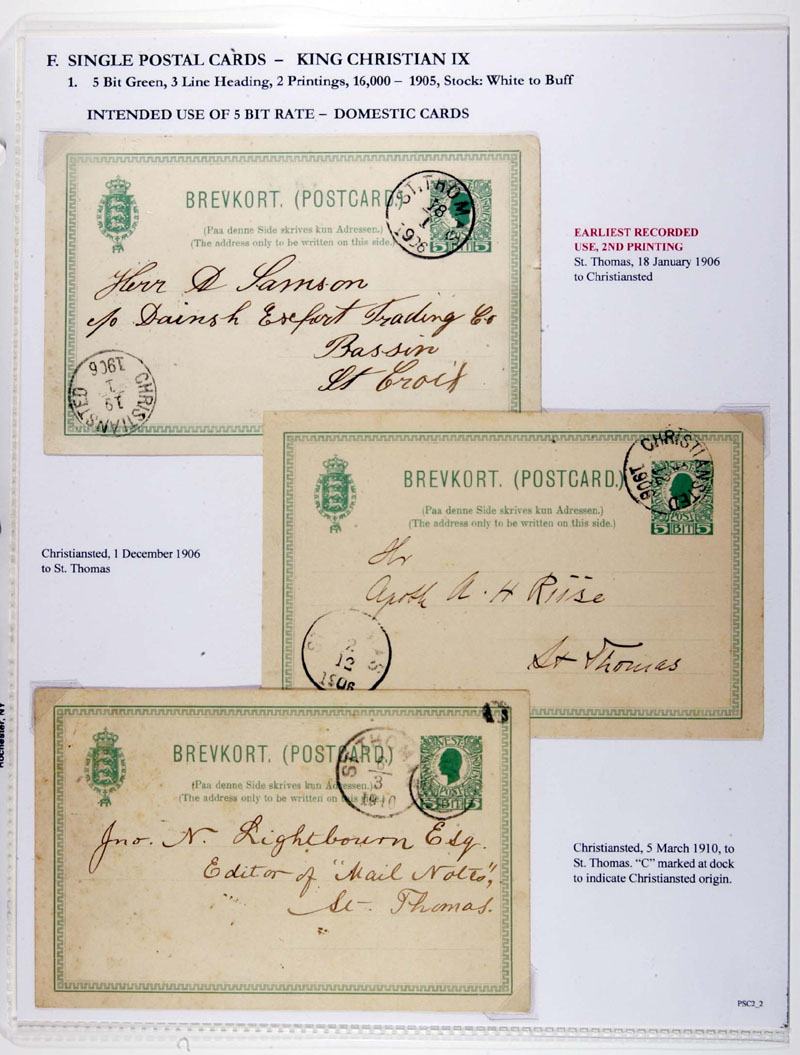 F. SINGLE POSTAL CARDS – KING CHRISTIAN IX
1. 5 Bit Green, 3 Line Heading, 2 Printings, 16,000 – 1905, Stock: White to Buff
INTENDED USE OF 5 BIT RATE – DOMESTIC CARDS
BREVKORT. (POSTCARD.)
(Paa denne Side skrives kun Adressen.)
(The address only to be written on this side.)
ST. THOMAS
18
1
1906
5 5
Herr A Samson
c/o Dainsh Exfort Trading Co
Bassin
St Croix
CHRISTIANSTED
19
1
1906
EARLIEST RECORDED
USE, 2ND PRINTING
St. Thomas, 18 January 1906
to Christiansted
BREVKORT. (POSTCARD.)
(Paa denne Side skrives kun Adressen.)
(The address only to be written on this side.)
CHRISTIANSTED
1906
POST
5 BIT 5
Hr
Apoth A. H Riise
St Thomas
2
12
1906
Christiansted, 1 December 1906
to St. Thomas
BREVKORT. (POSTCARD.)
(Paa denne Side skrives kun Adressen.)
(The address only to be written on this side.)
ST. THOMAS
6
3
1910
5 BIT 5
Jno. N. Lightbourn Esq.
Editor of "Mail Notes",
St. Thomas.
Christiansted, 5 March 1910, to
St. Thomas. "C" marked at dock
to indicate Christiansted origin.
PSC2_2
Rochester, NY